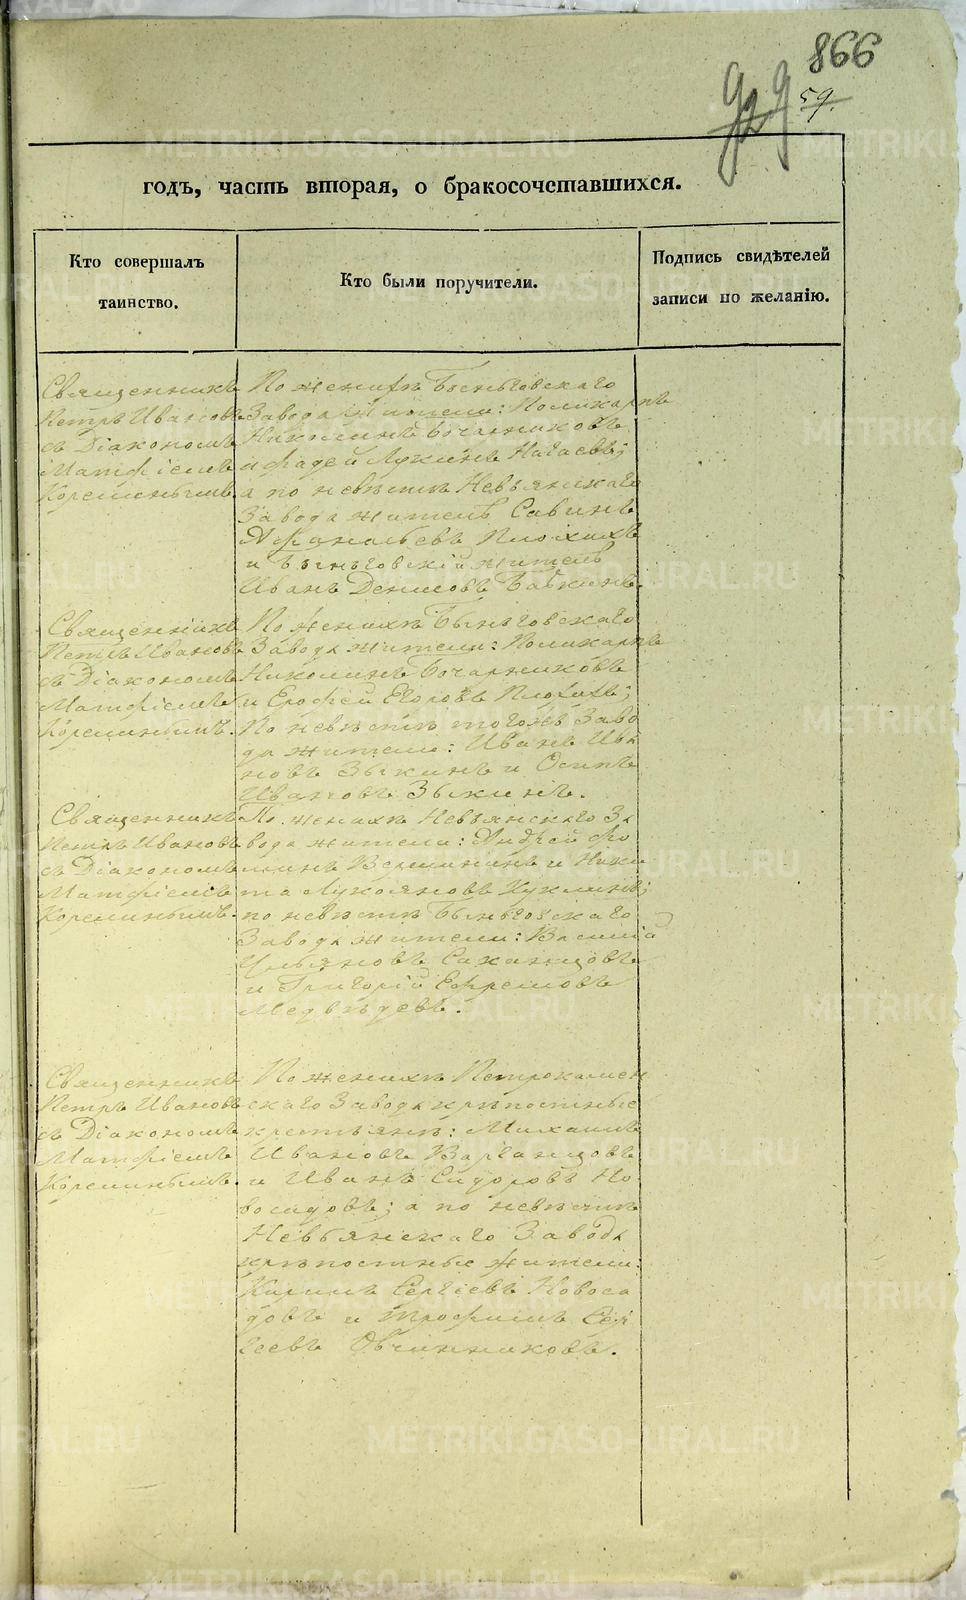 866
929
59.
годъ, часть вторая, о бракосочетавшихся.
Кто совершалъ
таинство.
Кто были поручители.
Подпись свидѣтелей
записи по желанію.
Священникъ
Петръ Ивановъ
съ Діакономъ
Матфіемъ
По женихѣ Быньговскаго
Завода жители: Поликарпъ
Николинъ Бочарниковъ,
и Фадей Лукинъ Нагаевъ;
а по невѣстѣ Невьянскаго
Завода житель Савинъ
Афанасьевъ Плохихъ
и Быньговскій житель
Иванъ Денисовъ Бабкинъ.
Священникъ
Петръ Ивановъ
съ Діакономъ
Матфіемъ
По женихѣ Быньговскаго
Завода жители: Поликарпъ
Николинъ Бочарниковъ
и Ерофей Егоровъ
По невѣстѣ тогожъ Заво
да жители: Иванъ Ива
новъ Зыкинъ и Осипъ
Ивановъ Зыкинъ.
Священникъ
Петръ Ивановъ
съ Діакономъ
Матфіемъ
По женихѣ Невьянскаго За
вода жители: Андрей Фо
минъ Вершининъ и Ники
та Лукояновъ Куклинъ;
по невѣстѣ Быньговскаго
Завода жители: Василій
Ульяновъ Саканцовъ
и Григорій Ефремовъ
Медвѣдевъ.
Священникъ
Петръ Ивановъ
съ Діакономъ
Матфіемъ
По женихѣ Петрокамен
скаго Завода крѣпостные
крестьяне: Михаилъ
Ивановъ Варганцовъ
и Иванъ Сидоровъ Но
восадовъ; а по невѣстѣ
Невьянскаго Завода
крѣпостные жители:
Карпъ Сергіевъ Новоса
довъ и Трофимъ Сер
геевъ Овчинниковъ.
METRIKI.GASO-URAL.RU